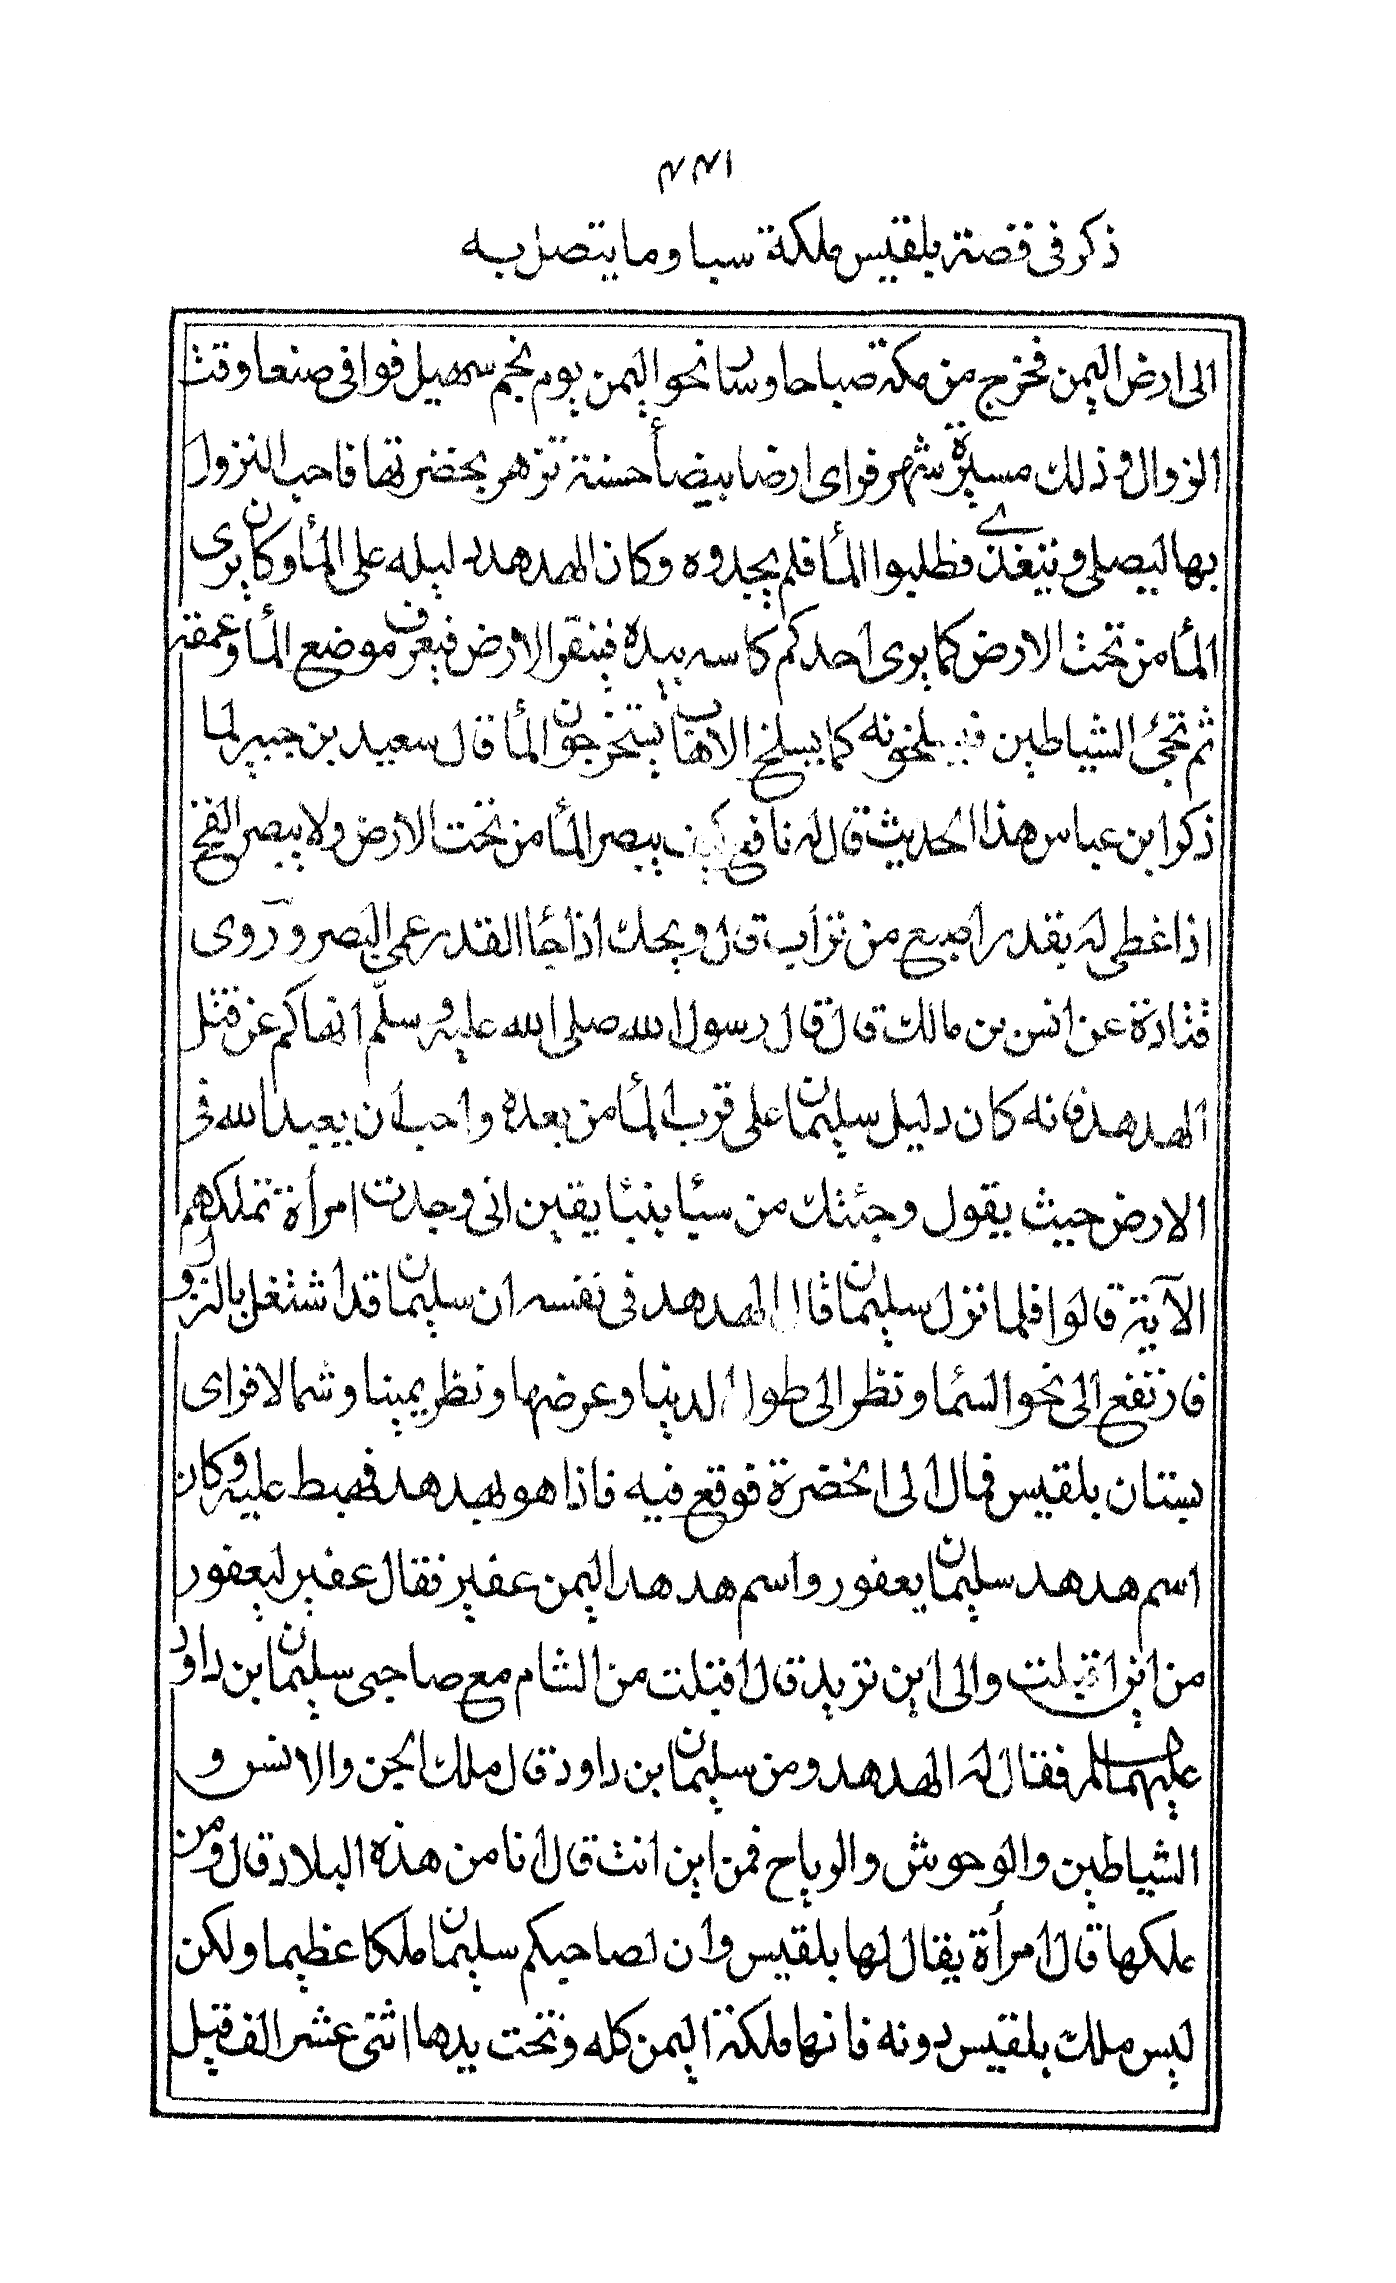 ٤٤١
ذكر في قصة بلقيس ملكة سبا وما يتصل به
الى ارض اليمن فخرج من مكة صباحا وسار نحو اليمن يوم نجم سهيل فوافى صنعا وقت
الزوال وذلك مسيرة شهر فراى ارضا بيضأ حسنة تزهر بخضرتها فاحب النزول
بها ليصلي ويتغذى فطلبوا المأ فلم يجدوه وكان الهدهد دليله على المأ وكان يرى
المأ من تحت الارض كما يرى احدكم كاسه بيده فينقر الارض فيعرف موضع المأ وعمقه
ثم تجئ الشياطين فيسلخونه كما يسلخ الاهاب يستخرجون المأ قال سعيد بن جبير لما
ذكر ابن عباس هذا الحديث قال له نافع كيف يبصر المأ من تحت الارض ولا يبصر الفخ
اذا غطى له بقدر اصبع من تراب قال ويحك اذا جأ القدر عمى البصر وروى
قتادة عن انس بن مالك قال قال رسول الله صلى الله عليه وسلم انهاكم عن قتل
الهدهد فانه كان دليل سليمان على قرب المأ من بعده واحب ان يعبد الله في
الارض حيث يقول وجئتك من سبأ بنبأ يقين اني وجدت امرأة تملكهم
الآية قالوا فلما نزل سليمان قال الهدهد في نفسه ان سليمان قد اشتغل بالنزول
فارتفع الى نحو السمأ ونظر الى طول الدنيا وعرضها ونظر يمينا وشمالا فراى
بستان بلقيس فمال الى الخضرة فوقع فيه فاذا هو بهدهد فهبط عليه وكان
اسم هدهد سليمان يعفور واسم هدهد اليمن عفير فقال عفير ليعفور
من اين اقبلت والى اين تريد قال اقبلت من الشام مع صاحبي سليمان ابن داود
عليهما السلم فقال له الهدهد ومن سليمان ابن داود قال ملك الجن والانس و
الشياطين والوحوش والرياح فمن اين انت قال انا من هذه البلاد قال ومن
ملكها قال امرأة يقال لها بلقيس وان لصاحبكم سليمان ملكا عظيما ولكن
ليس ملك بلقيس دونه فانها ملكة اليمن كله وتحت يدها اثنى عشر الف قيل